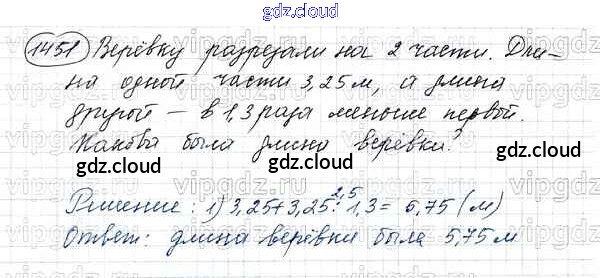 gdz.cloud
1451 Верёвку разрезали на 2 части. Дли-
на одной части 3,25 м, а длина
другой – в 1,3 раза меньше первой.
Какова была длина верёвки?
gdz.cloud gdz.cloud gdz.cloud
2,5
Решение: 1) 3,25+3,25:1,3= 5,75 (м)
Ответ: длина верёвки была 5,75 м
gdz.cloud gdz.cloud